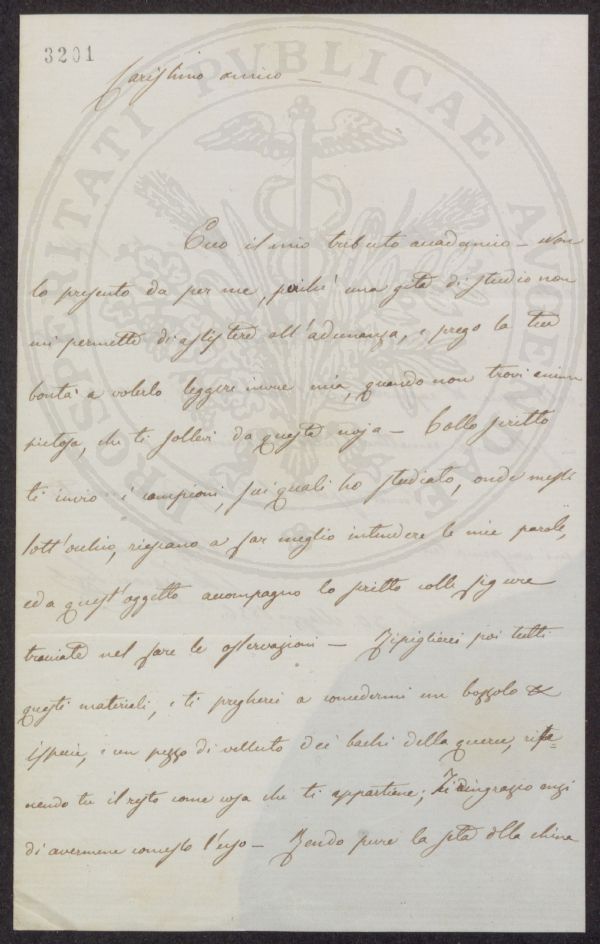 3201
Carissimo amico —
Ecco il mio tributo accademico — Non
lo presento da per me, poiché una gita di studio non
mi permette di assistere all'adunanza, e prego la tua
bontà a volerlo leggere invece mia, quando non trovi anima
pietosa, che ti sollevi da questa noja — Collo scritto
ti invio i campioni, sui quali ho studiato, onde messi
sott'occhio, riescano a far meglio intendere le mie parole,
ed a quest'oggetto accompagno lo scritto colle figure
tracciate nel fare le osservazioni — Ripiglierei poi tutti
questi materiali, e ti pregherei a concedermi un bozzolo
specie, e un pezzo di velluto dei bachi della querce,
nendo tu il resto come cosa che ti appartiene; Ti ringrazio anzi
di avermene concesso l'uso — Rendo pure la seta della China
PROSPERITATI PVBLICAE AVGENDAE